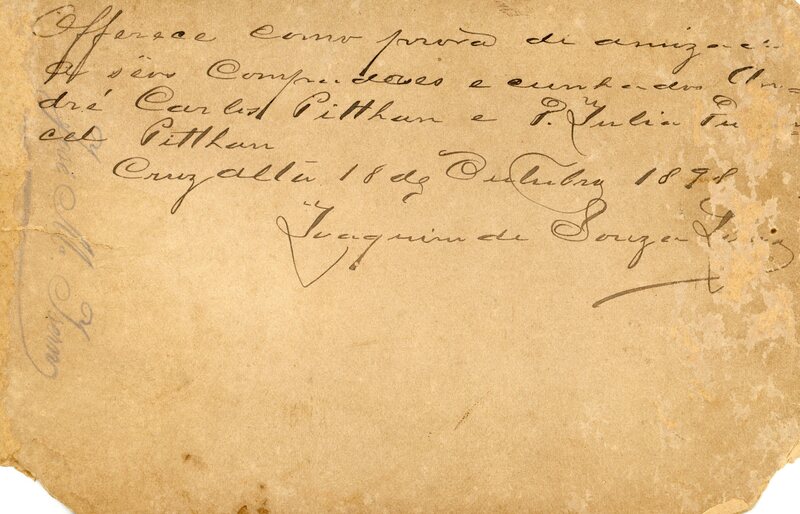 Offerece como prova de amizade
a sëos Compadres e cunhados An-
dré Carlos Pitthan e D. Julia Pu
cel Pitthan
Cruz Alta 18 de Outubro 1898
Joaquim de Souza
José M.